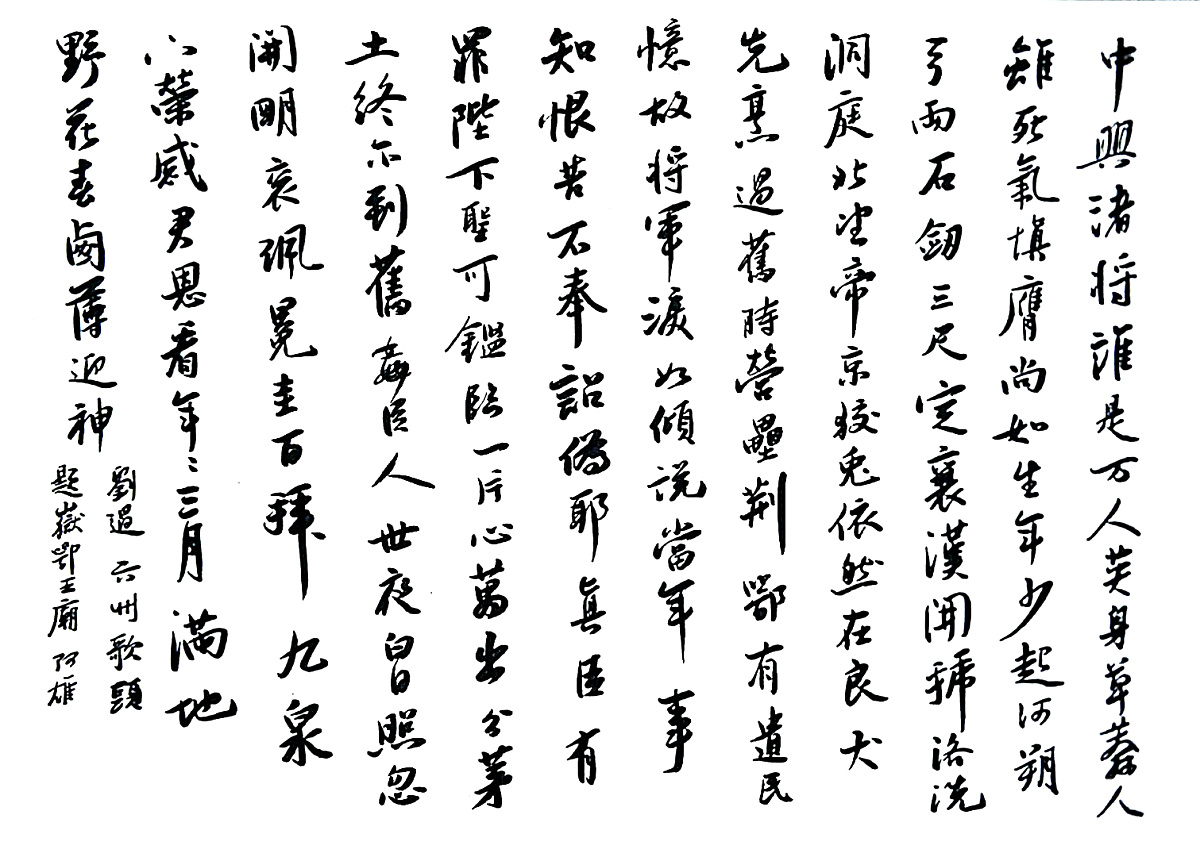 中興諸将誰是万人英身草莽人
雖死氣填膺尚如生年少起河朔
弓兩石劔三尺定襄漢開虢洛洗
洞庭北望帝京狡兔依然在良犬
先烹過舊時營壘荊鄂有遺民
憶故将軍淚如傾說當年事
知恨苦不奉詔偽耶真臣有
罪陛下聖可鑑臨一片心萬古分茅
土終不到舊姦臣人世夜白日照忽
開明袞珮冕圭百拜九泉
下榮感君恩看年〻三月滿地
野花春鹵薄迎神
劉過 六州歌頭
題嶽鄂王廟 阿雄